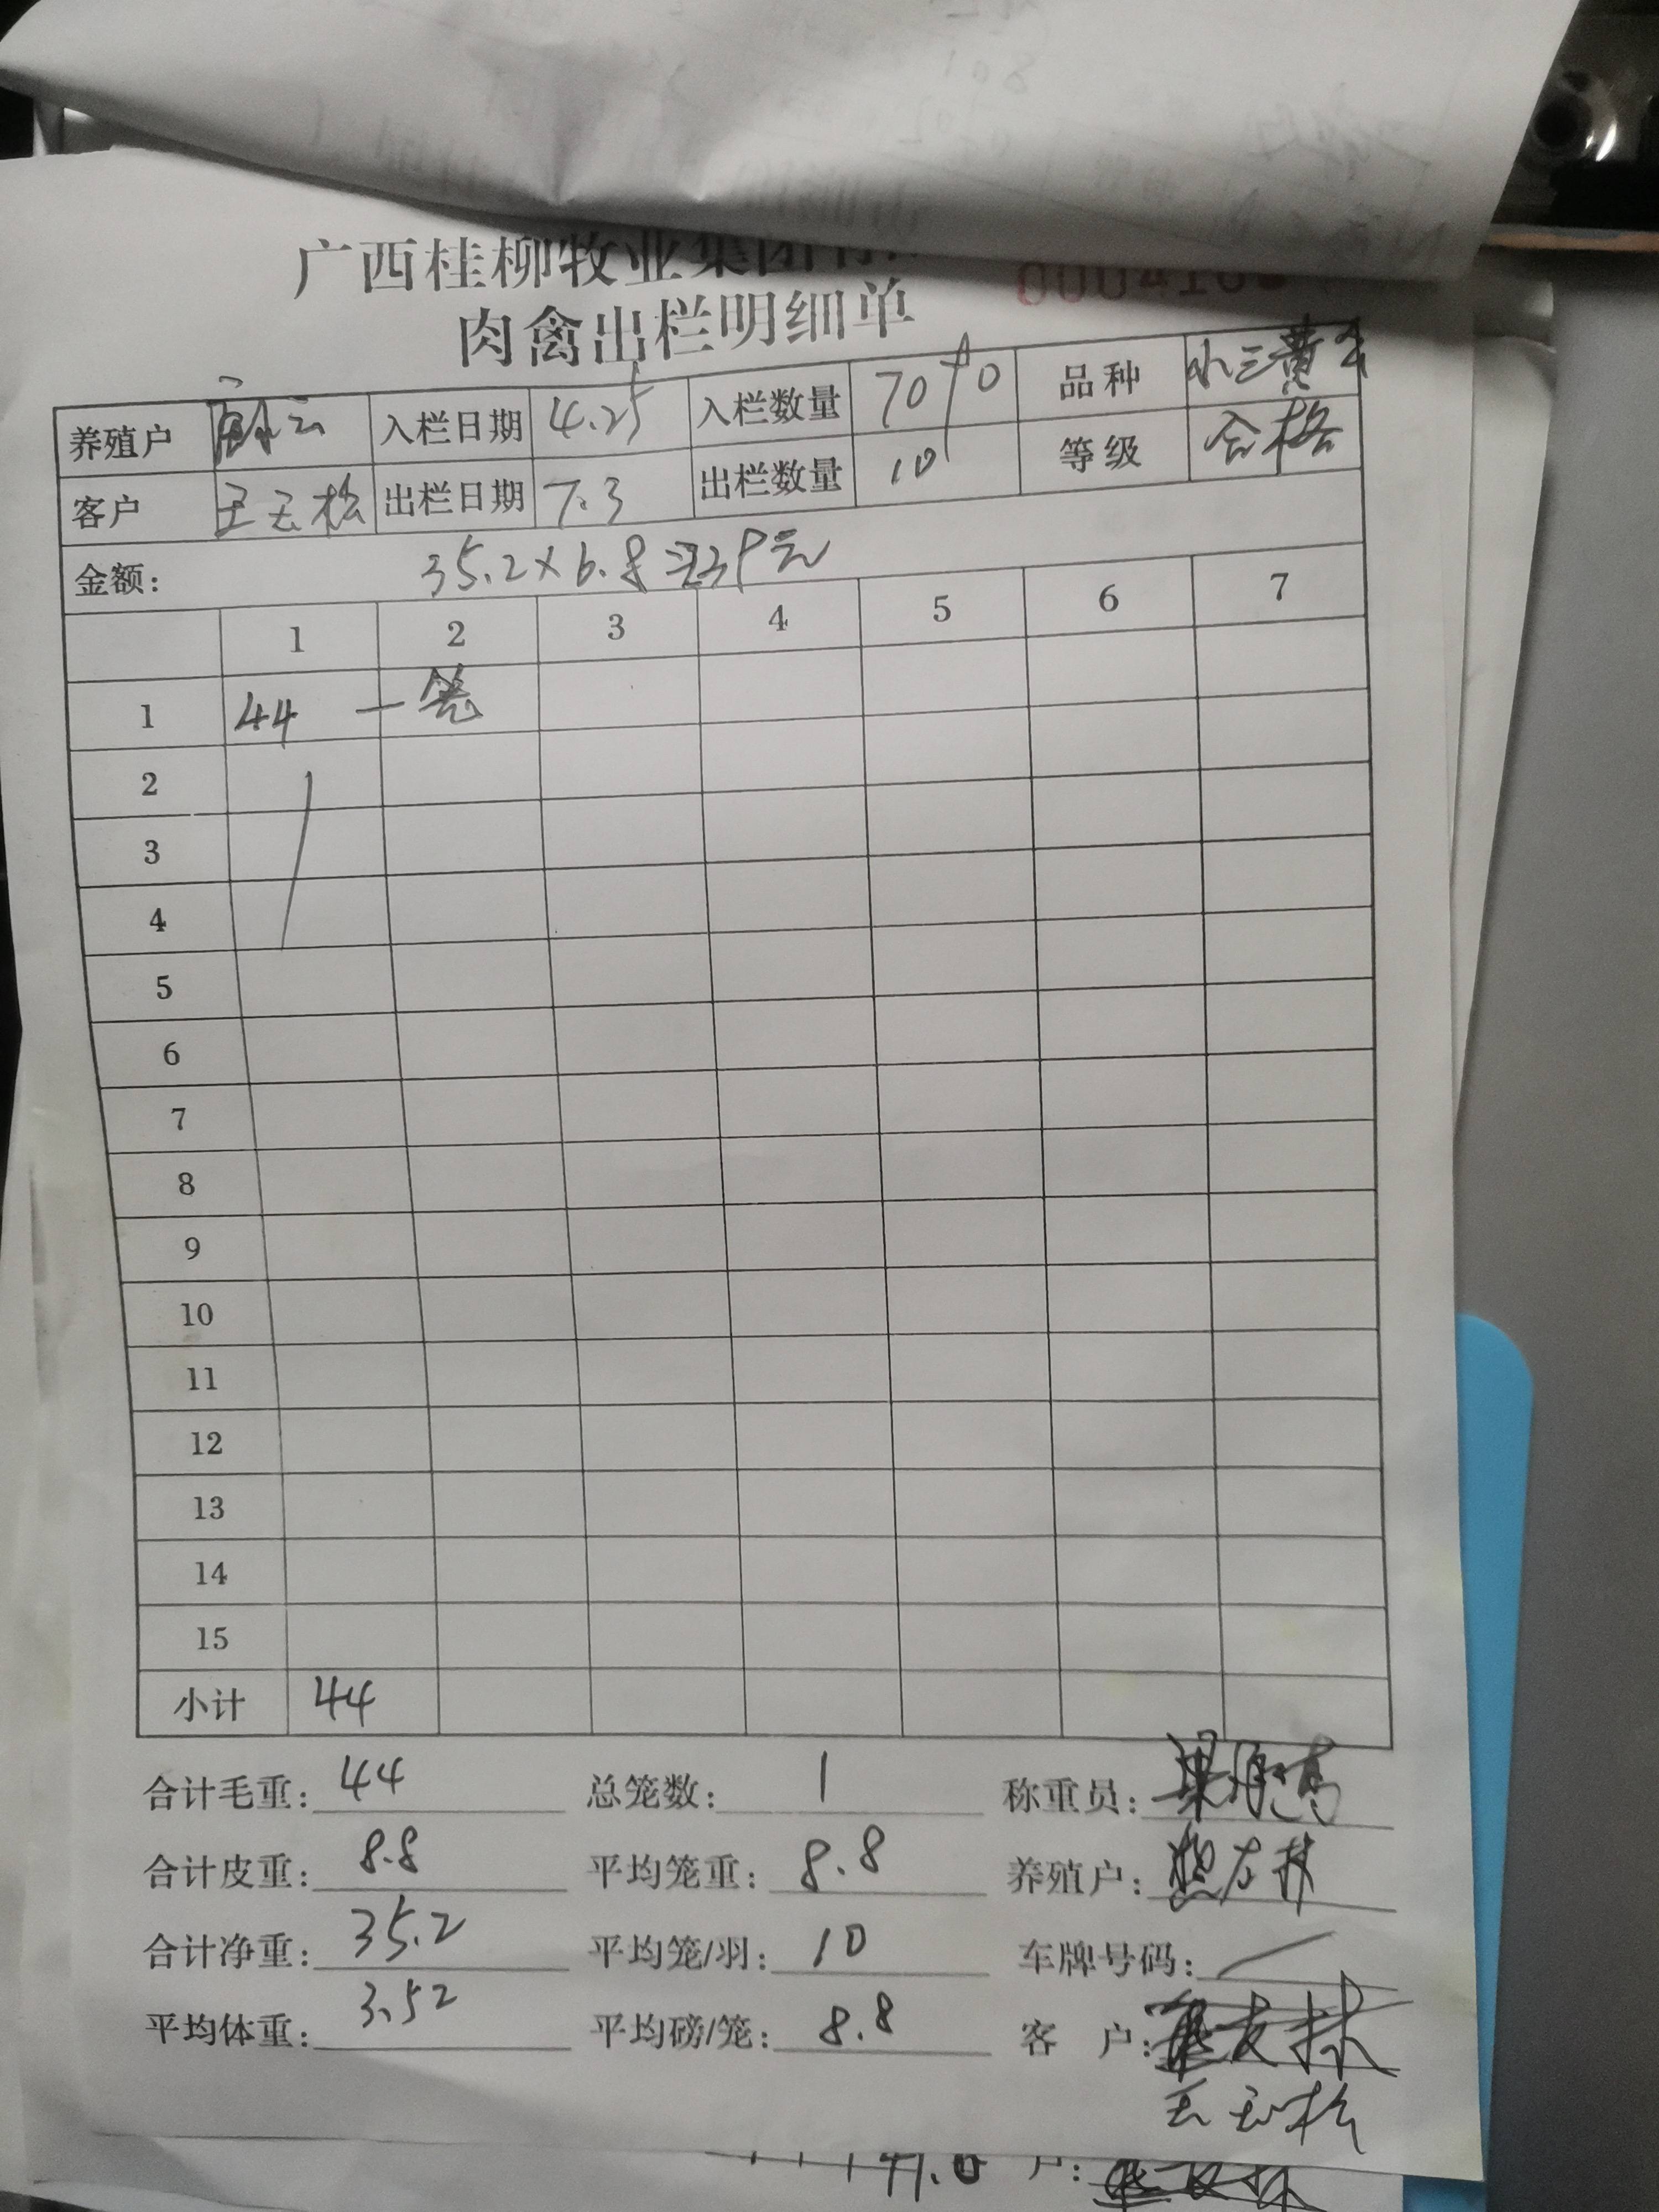 广西桂柳牧业集团有
000416
肉禽出栏明细单
养殖户 入栏日期 4.25 入栏数量 7070 品种 小三黄
客户 王云松 出栏日期 7.3 出栏数量 10 等级 合格
金额: 35.2×6.8=239元
1 2 3 4 5 6 7
1 44 一笼
2
3
4
5
6
7
8
9
10
11
12
13
14
15
小计 44
合计毛重: 44 总笼数: 1 称重员:
合计皮重: 8.8 平均笼重: 8.8 养殖户:
合计净重: 35.2 平均笼/羽: 10 车牌号码: /
平均体重: 3.52 平均磅/笼: 8.8 客 户:
王云松
户: